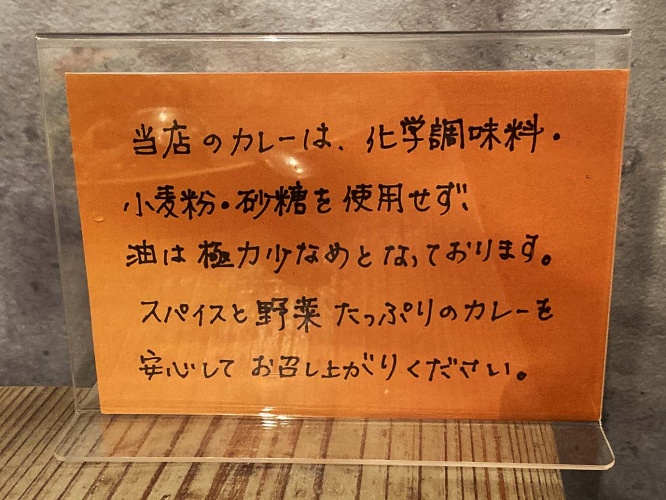 当店のカレーは、化学調味料・
小麦粉・砂糖を使用せず、
油は極力少なめとなっております。
スパイスと野菜たっぷりのカレーを
安心してお召し上がりください。